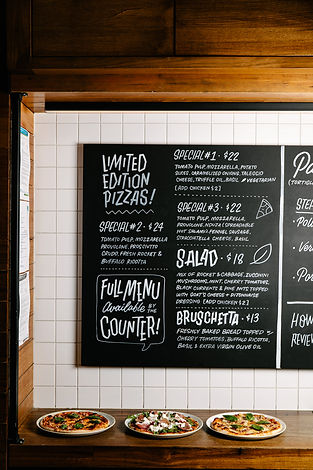 LIMITED
EDITION
PIZZAS!
SPECIAL #2 - $24
TOMATO PULP, MOZZARELLA,
PROVOLONE, PROSCIUTTO
CRUDO, FRESH ROCKET &
BUFFALO RICOTTA
FULL MENU
Available BY THE
COUNTER!
SPECIAL #1 - $22
TOMATO PULP, MOZZARELLA, POTATO
SLICES, CARAMELIZED ONIONS, TALEGGIO
CHEESE, TRUFFLE OIL, BASIL VEGETARIAN
[ADD CHICKEN $2]
SPECIAL #3 - $22
TOMATO PULP, MOZZARELLA,
PROVOLONE, NDUJA (SPREADABLE
HOT SALAMI), FENNEL SAUSAGE,
STRACIATELLA CHEESE, BASIL
SALAD - $18
MIX OF ROCKET & CABBAGE, ZUCCHINI
MUSHROOMS, MINT, CHERRY TOMATOES,
BLACK CURRENTS & PINE NUTS TOPPED
WITH GOAT'S CHEESE + DIJONNAISE
DRESSING [ADD CHICKEN $2]
BRUSCHETTA - $13
FRESHLY BAKED BREAD TOPPED
CHERRY TOMATOES, BUFFALO RICOTTA,
BASIL & EXTRA VIRGIN OLIVE OIL